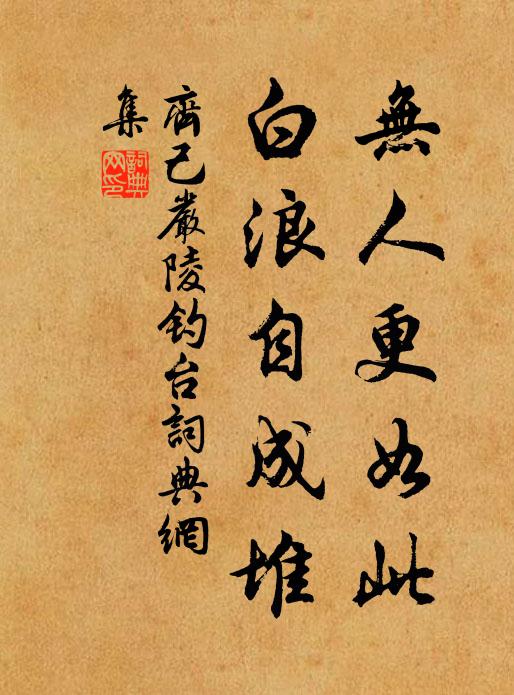 無人更如此
白浪自成堆
齊己嚴陵釣台詞典網
集
詞典
網印